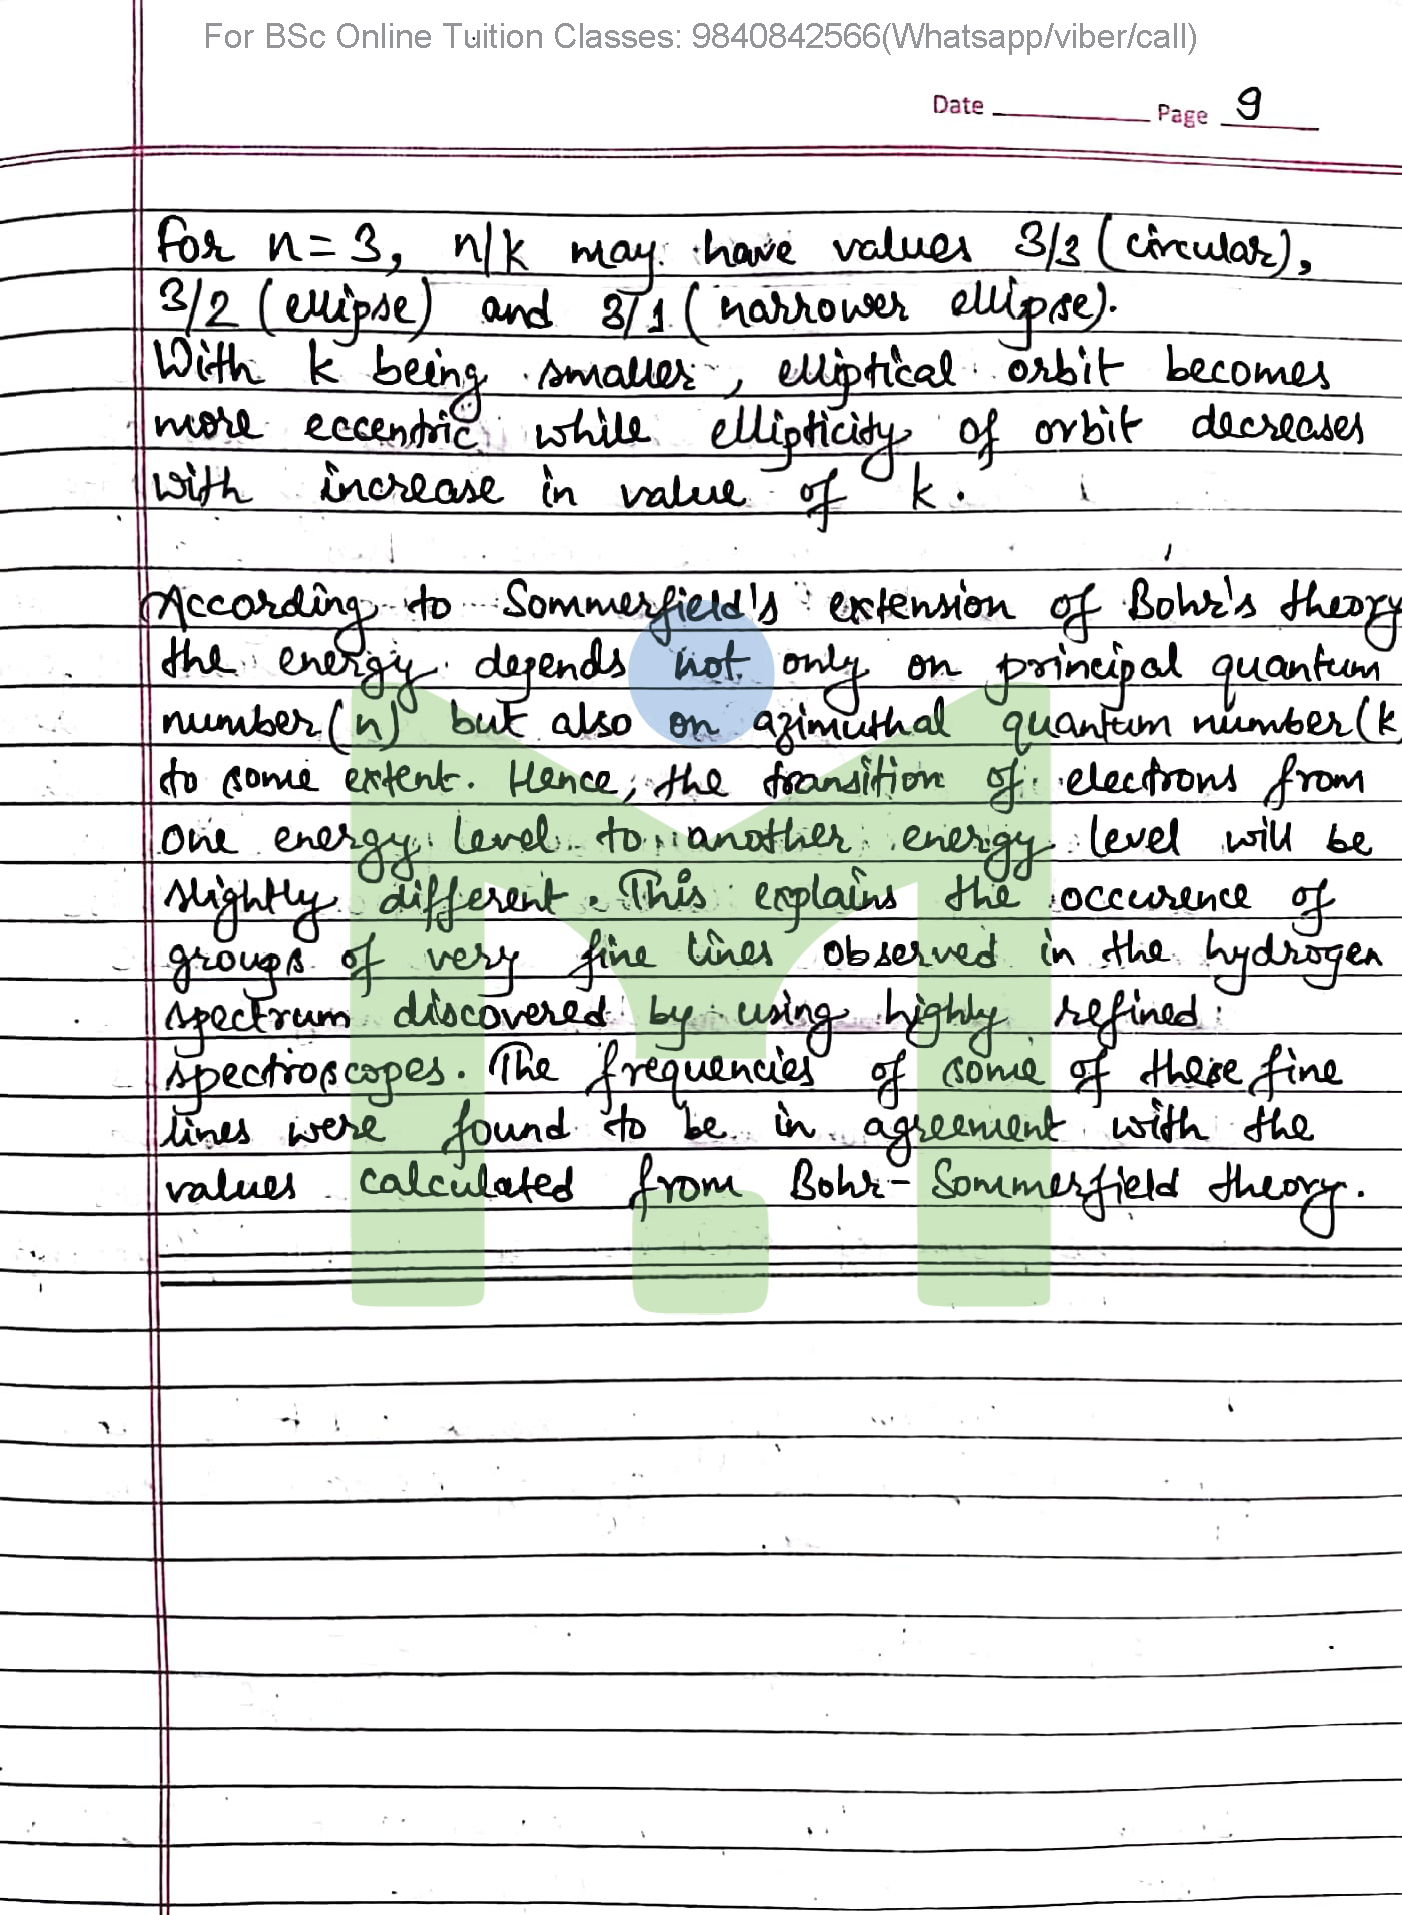 For BSc Online Tuition Classes: 9840842566(Whatsapp/viber/call)
Date Page 9
For n = 3, n/k may have values 3/3 (circular),
3/2 (ellipse) and 3/1 (narrower ellipse).
With k being smaller, elliptical orbit becomes
more eccentric while ellipticity of orbit decreases
with increase in value of k.
According to Sommerfield's extension of Bohr's theory
the energy depends not only on principal quantum
number (n) but also on azimuthal quantum number (k
to some extent. Hence, the transition of electrons from
one energy level to another energy level will be
slightly different. This explains the occurence of
groups of very fine lines observed in the hydrogen
spectrum discovered by using highly refined
spectroscopes. The frequencies of some of these fine
lines were found to be in agreement with the
values calculated from Bohr-Sommerfield theory.